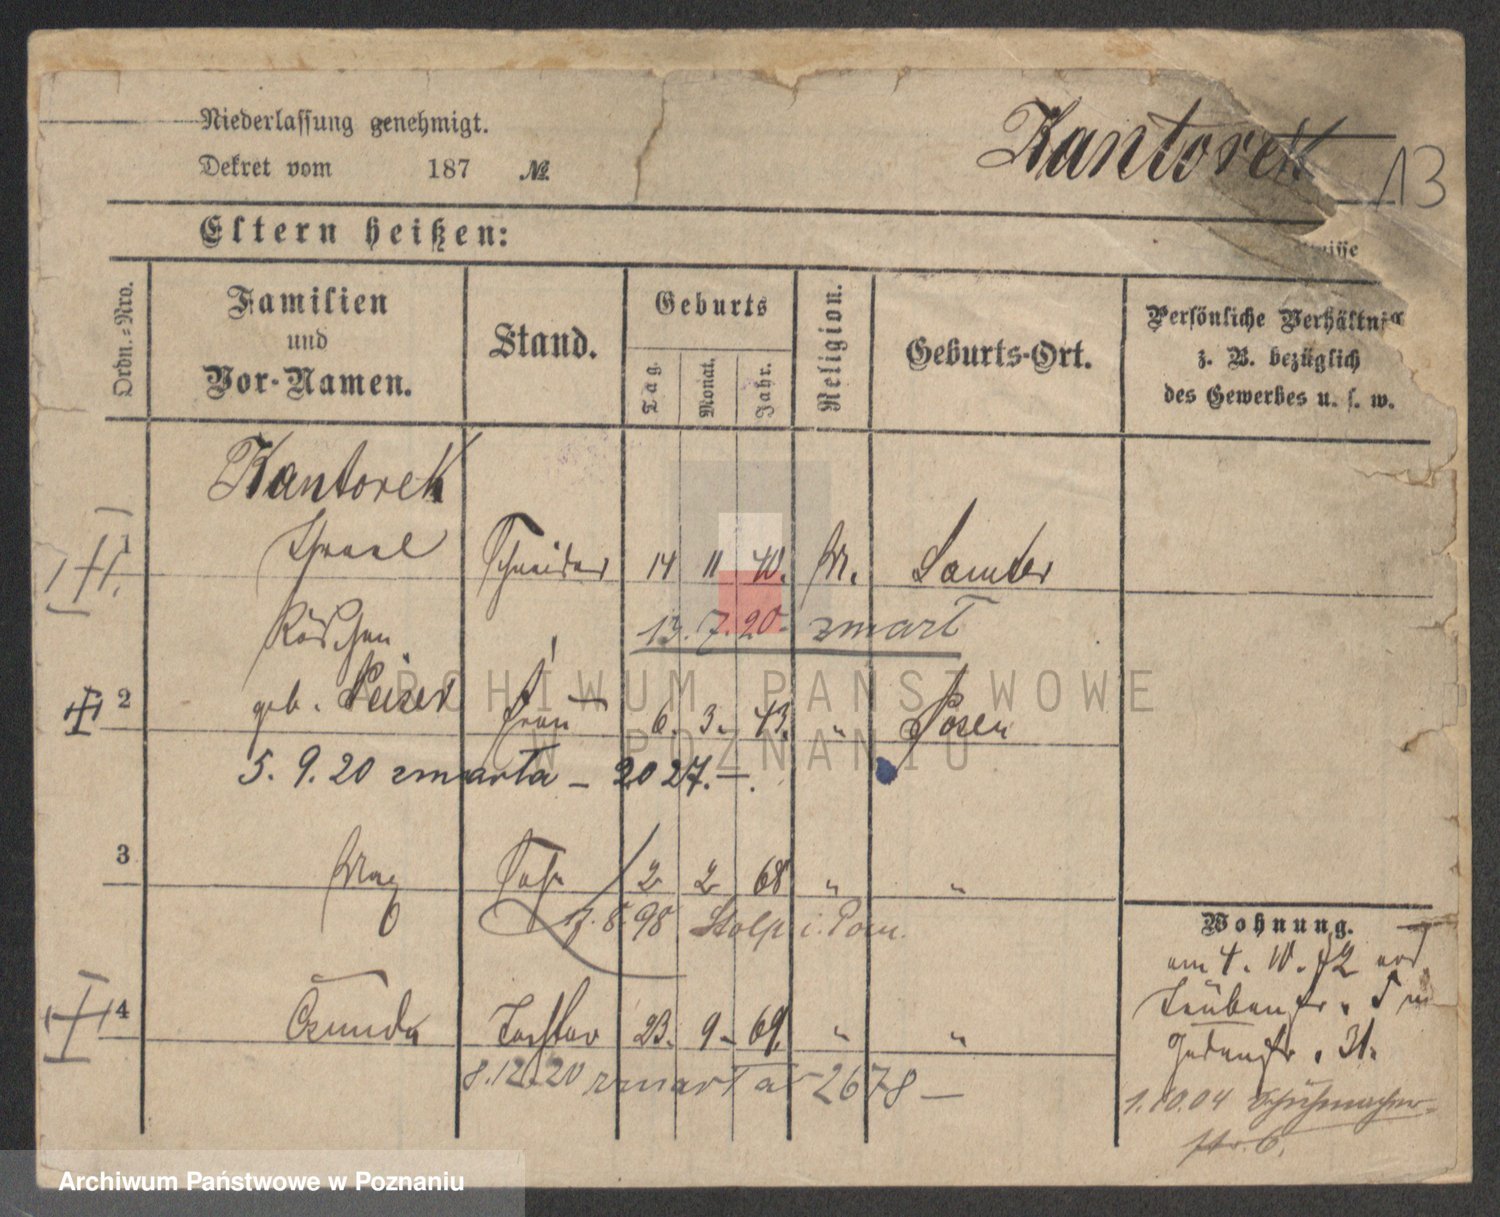 Niederlassung genehmigt.
Dekret vom 187 №
Kantorek
13
Eltern heißen:
nisse
Ordn.-Nro.
Familien
und
Vor-Namen.
Stand.
Geburts
Tag.
Monat.
Jahr.
Religion.
Geburts-Ort.
Persönliche Verhältniss
z. B. bezüglich
des Gewerbes u. s. w.
Kantorek
1 Israel Schneider 14 11 40. M. Samter
13. 7. 20 - zmarł
Röschen
2 geb. Peiser Frau 6. 3. 43. " Posen
5. 9. 20 zmarła - 2027.-
3 Max Sohn 2 2 68 " "
17. 8. 98 Stolp i. Pom.
4 Tochter 23. 9. 69. " "
8.12.20 zmarła - 2678 -
Wohnung.
am 4. 10. 72
Judenstr. 31.
1.10.04 Schuhmacher-
str. 6.
ARCHIWUM PAŃSTWOWE
W POZNANIU
Archiwum Państwowe w Poznaniu